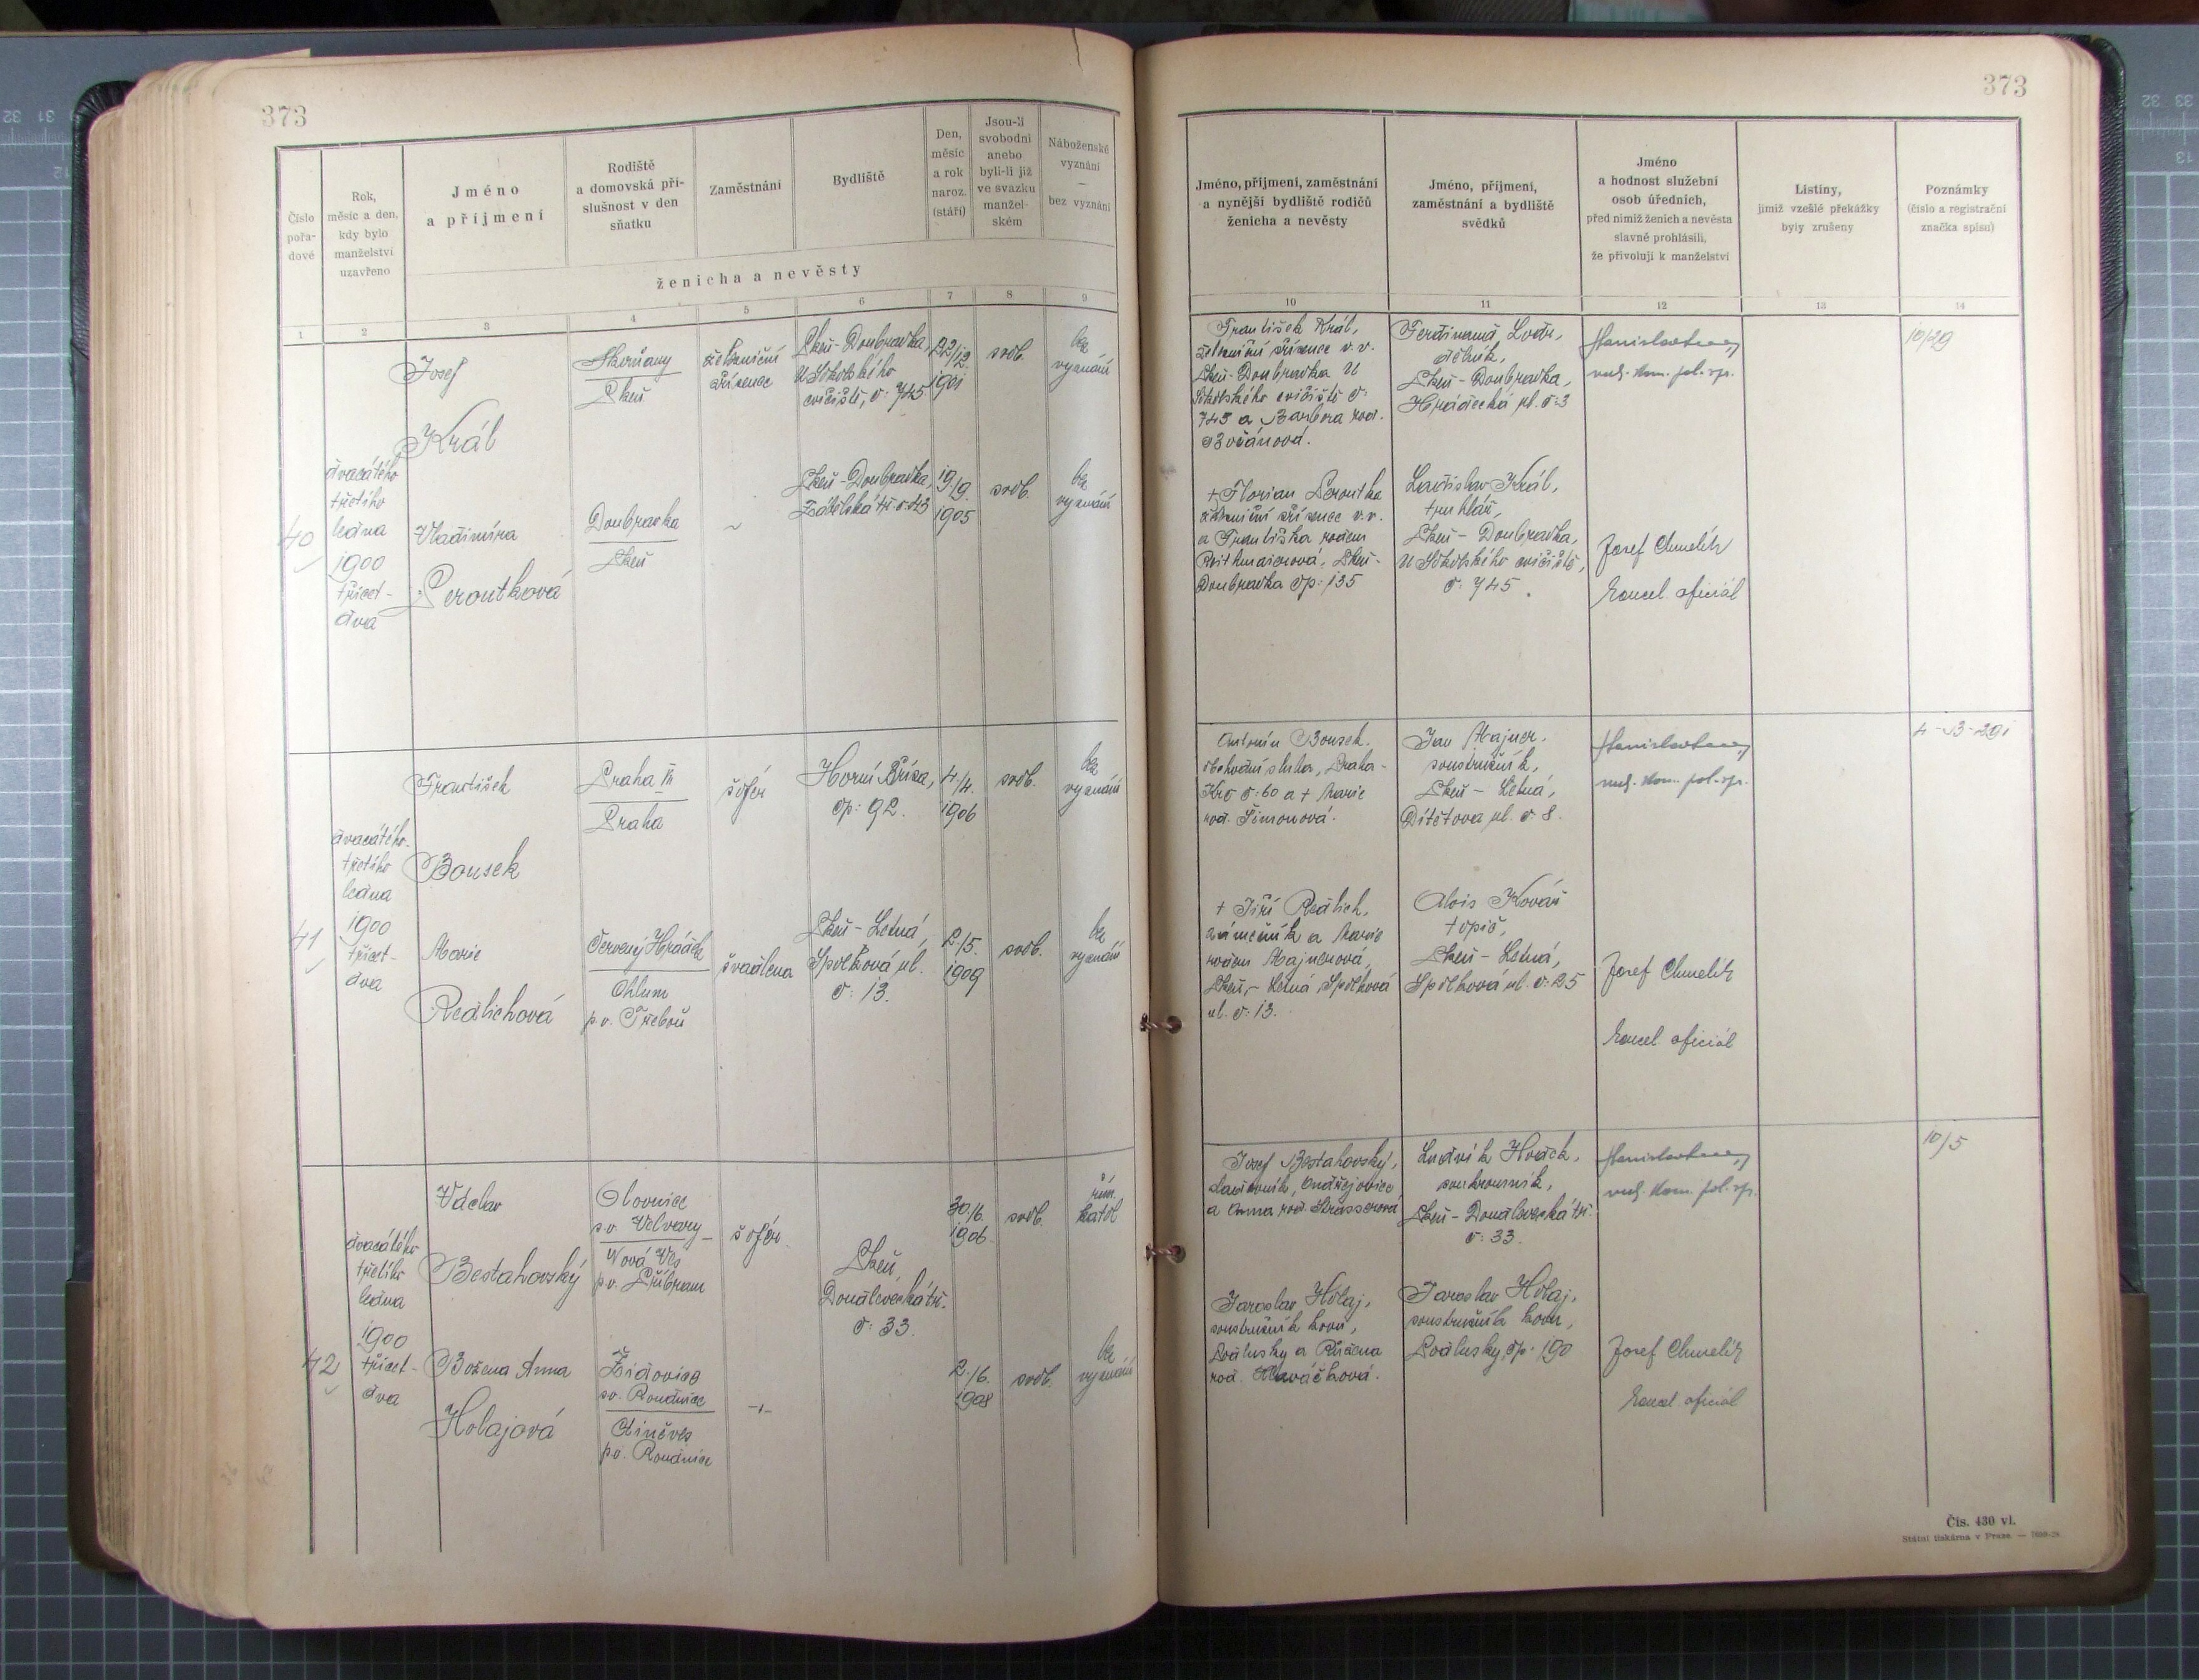 373
373
Číslo
pořa-
dové
Rok,
měsíc a den,
kdy bylo
manželství
uzavřeno
Jméno
a příjmení
Rodiště
a domovská pří-
slušnost v den
sňatku
Zaměstnání
Bydliště
Den,
měsíc
a rok
naroz.
(stáří)
Jsou-li
svobodni
anebo
byli-li již
ve svazku
manžel-
ském
Náboženské
vyznání
—
bez vyznání
ženicha a nevěsty
1 2 3 4 5 6 7 8 9
Jméno, příjmení, zaměstnání
a nynější bydliště rodičů
ženicha a nevěsty
Jméno, příjmení,
zaměstnání a bydliště
svědků
Jméno
a hodnost služební
osob úředních,
před nimiž ženich a nevěsta
slavně prohlásili,
že přivolují k manželství
Listiny,
jimiž vzešlé překážky
byly zrušeny
Poznámky
(číslo a registrační
značka spisu)
10 11 12 13 14
40
dvacátého
třetího
ledna
1900
třicet-
dva
Josef
Král
Skvrňany
Plzeň
železniční
zřízenec
Plzeň-Doubravka,
U Sokolského
cvičiště, č: 745
22/12.
1901
svob.
bez
vyznání
Vladimíra
Peroutková
Doubravka
Plzeň
~
Plzeň-Doubravka,
Zábělská tř. č:
19/9.
1905
svob.
bez
vyznání
František Král,
železniční zřízenec v. v.
Plzeň-Doubravka U
Sokolského cvičiště č:
745 a Barbora roz.
+ Florian Peroutka
železniční zřízenec v. v.
a Františka rozen
Reithmaierová, Plzeň-
Doubravka čp: 135
Ferdinand Lodr,
dělník,
Plzeň-Doubravka,
Hrádecká ul. č: 3
Ladislav Král,
truhlář,
Plzeň-Doubravka,
U Sokolského cvičiště,
č: 745.
vrch. kom. pol. spr.
Josef Chmelík
kancel. oficiál
10/29
41
dvacátého-
třetího
ledna
1900
třicet-
dva
František
Bousek
Praha III
Praha
šofér
Horní Bříza,
čp: 92.
4./4.
1906
svob.
bez
vyznání
Marie
Redlichová
Červený Hrádek
Chlum
p. o. Třeboň
švadlena
Plzeň-Letná,
Spolková ul.
č: 13.
2./5.
1909
svob.
bez
vyznání
Antonín Bousek.
obchodní sluha, Praha-
Krč č: 60 a + Marie
roz. Šimonová.
+ Jiří Redlich,
zámečník a Marie
rozen Majnerová,
Plzeň-Letná, Spolková
ul. č: 13.
Jan Majner.
soustružník,
Plzeň-Letná,
Dítětova ul. č 8.
Alois Kovář
topič,
Plzeň-Letná,
Spolková ul. č: 25
vrch. kom. pol. spr.
Josef Chmelík
kancel. oficiál
42
dvacátého
třetího
ledna
1900
třicet-
dva
Václav
Bestahovský
Olovnice
p. o. Velvary
Nová Ves
p. o. Příbram
šofér
Plzeň
Doudlevecká tř.
č: 33.
30./6.
1906
svob.
řím.
katol
Božena Anna
Holajová
Židovice
p. o. Roudnice
Ctiněves
p. o. Roudnice
-"-
2./6.
1908
svob.
bez
vyznání
Josef Bestahovský,
Ondřejovice
a Anna roz. Strasserová
Jaroslav Holaj,
soustružník kovů,
Podlusky a Růžena
roz. Hlaváčková.
Ludvík Hodek,
soukromník,
Plzeň-Doudlevecká tř.
č: 33.
Jaroslav Holaj,
soustružník kovů,
Podlusky, čp: 190
vrch. kom. pol. spr.
Josef Chmelík
kancel. oficiál
10/5
Čís. 430 vl.
Státní tiskárna v Praze.